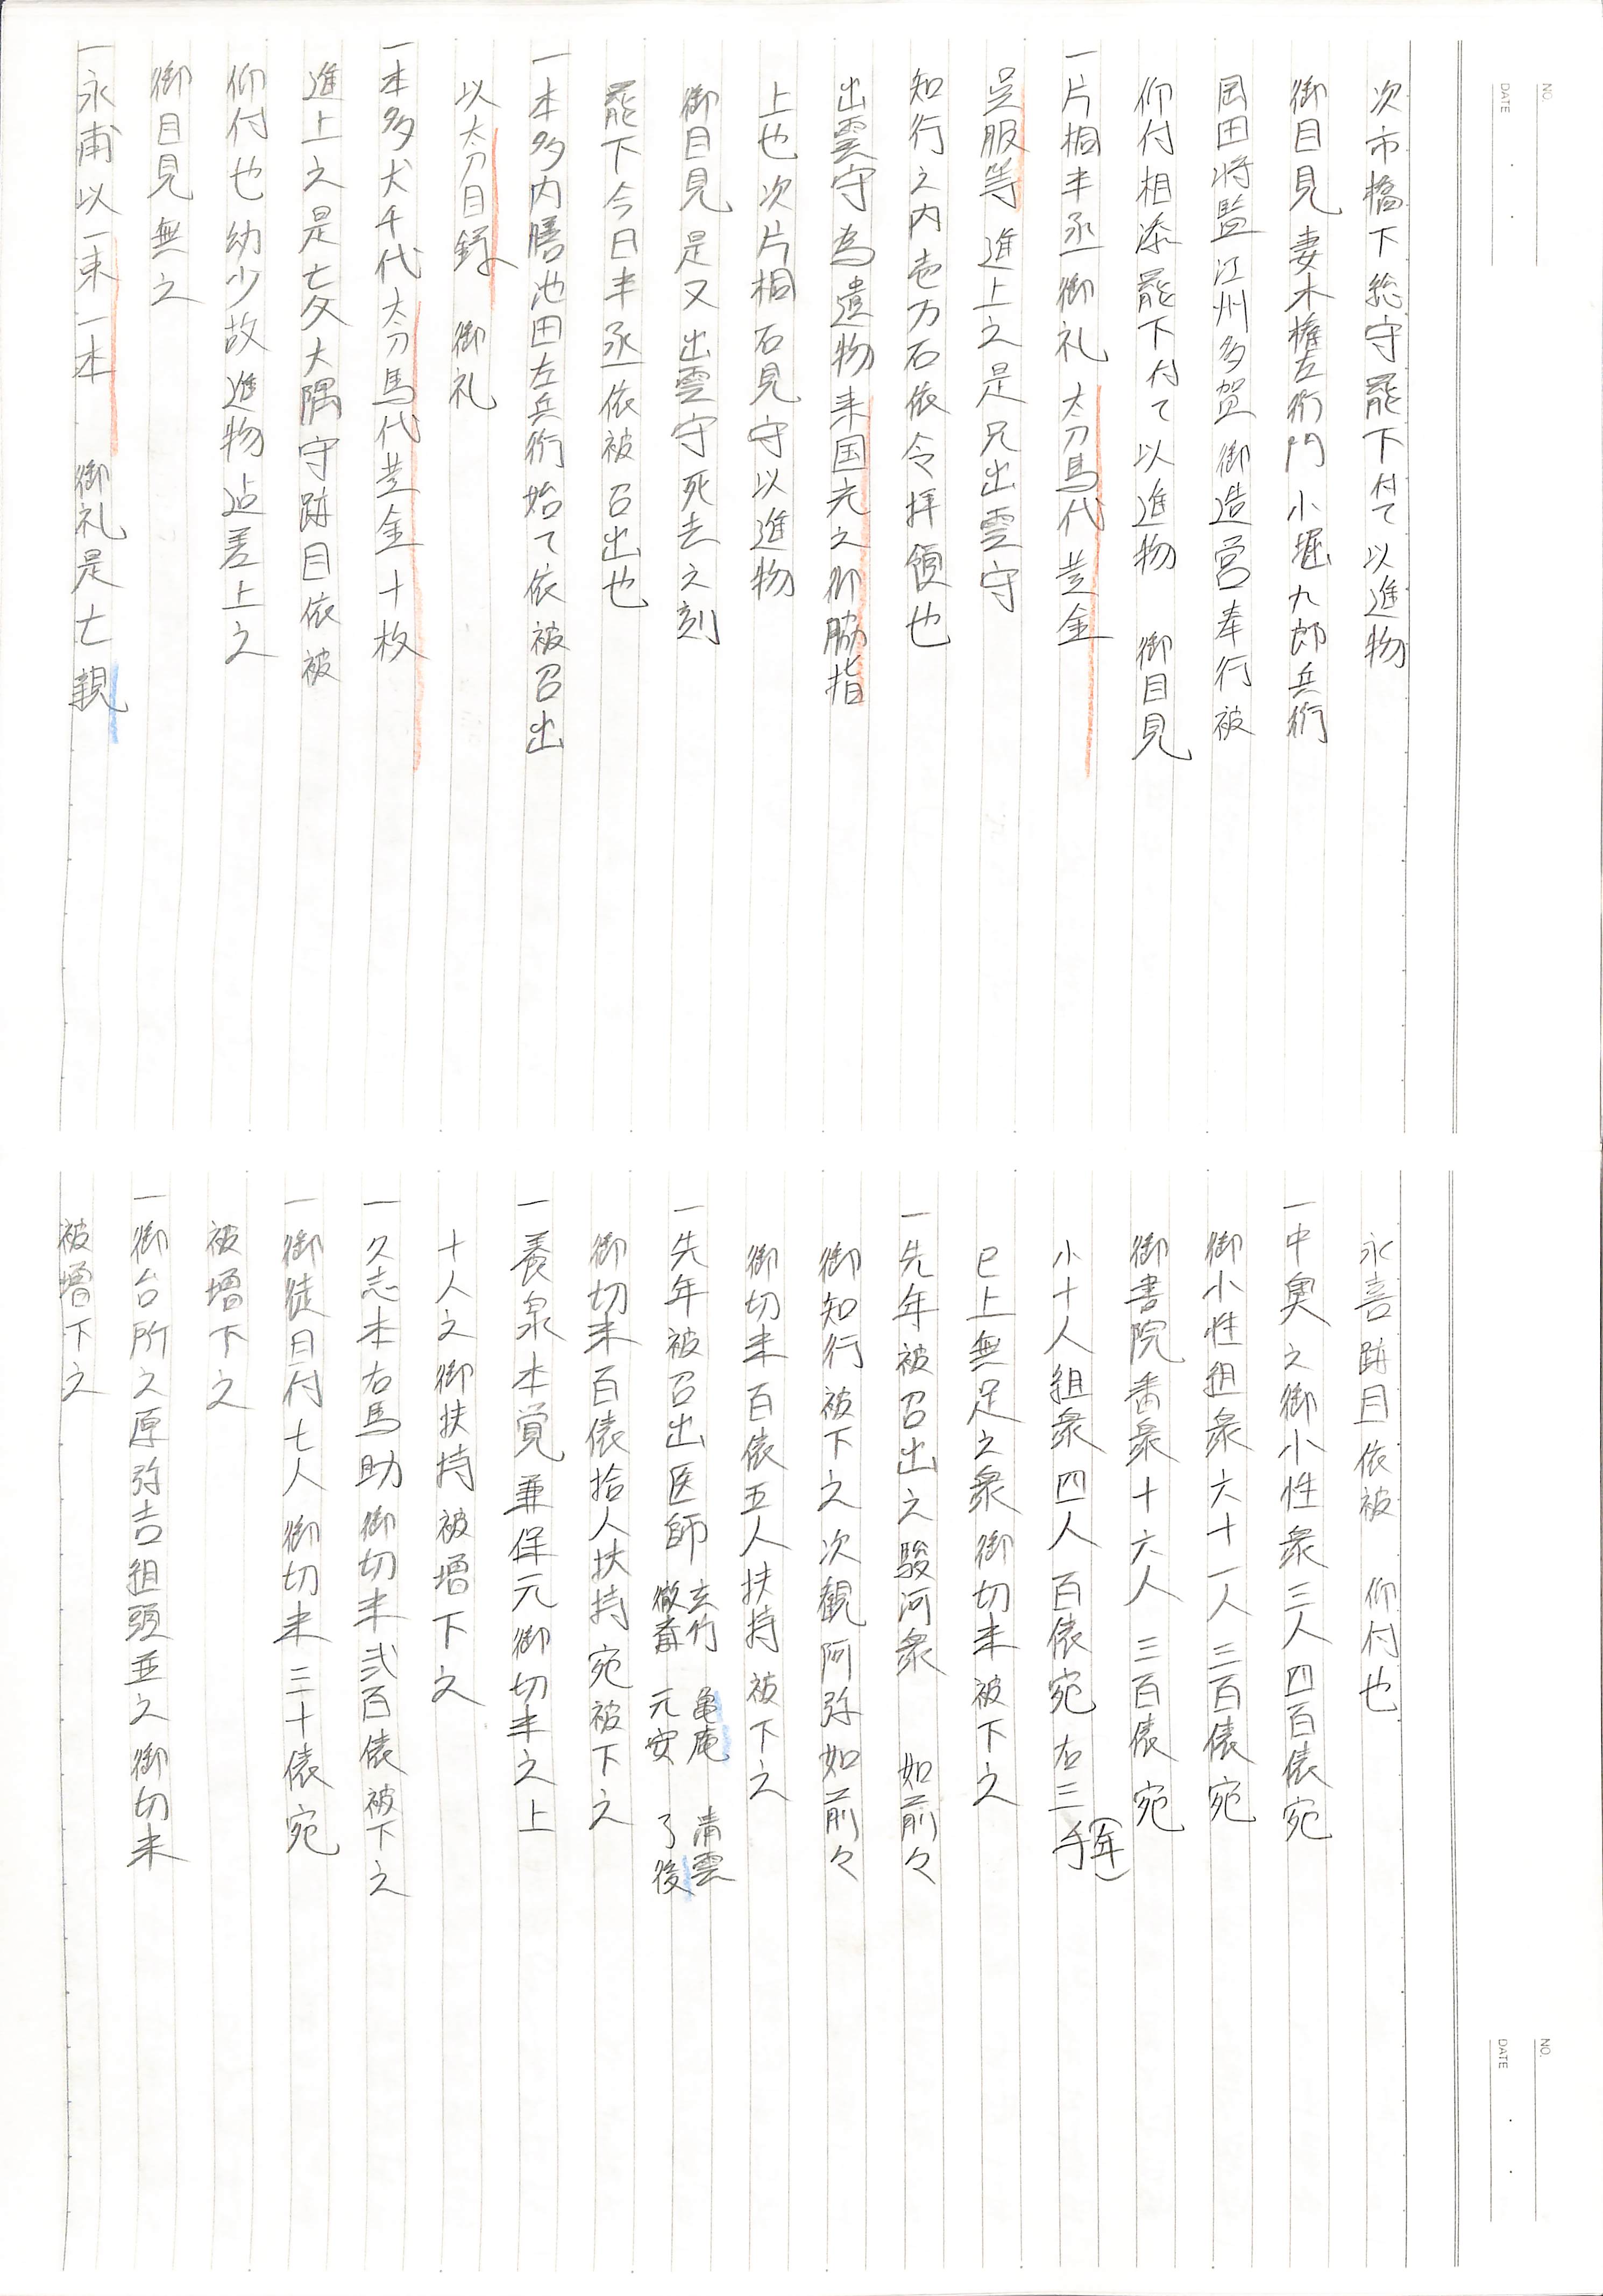 NO.
DATE
次市橋下総守罷下付て以進物
御目見妻木権左衛門小堀九郎兵衛
岡田将監江州多賀御造営奉行被
仰付相添罷下付て以進物 御目見
一片桐半丞御礼太刀馬代黄金
呉服等進上之是兄出雲守
知行之内壱万石依令拝領也
出雲守為遺物来国光之御脇指
上也次片桐石見守以進物
御目見是又出雲守死去之刻
罷下今日半丞依被召出也
一本多内膳池田左兵衛始て依被召出
以太刀目録 御礼
一本多犬千代太刀馬代黄金十枚
進上之是亡父大隅守跡目依被
仰付也幼少故進物迠差上之
御目見無之
一永甫以一束一本 御礼是亡親
NO.
DATE
永喜跡目依被 仰付也
一中奥之御小性衆三人四百俵宛
御小性組衆六十一人三百俵宛
御書院番衆十六人三百俵宛
小十人組衆四人百俵宛右三手(年)
已上無足之衆御切米被下之
一先年被召出之駿河衆 如前々
御知行被下之次観阿弥如前々
御切米百俵五人扶持被下之
一先年被召出医師 玄竹 亀庵 清雲
徹斎 元安 了後
御切米百俵拾人扶持宛被下之
一養泉本覚兼保元御切米之上
十人之御扶持被増下之
一久志本右馬助御切米弐百俵被下之
一御徒目付七人御切米三十俵宛
被増下之
一御台所之原弥吉組頭並之御切米
被増下之